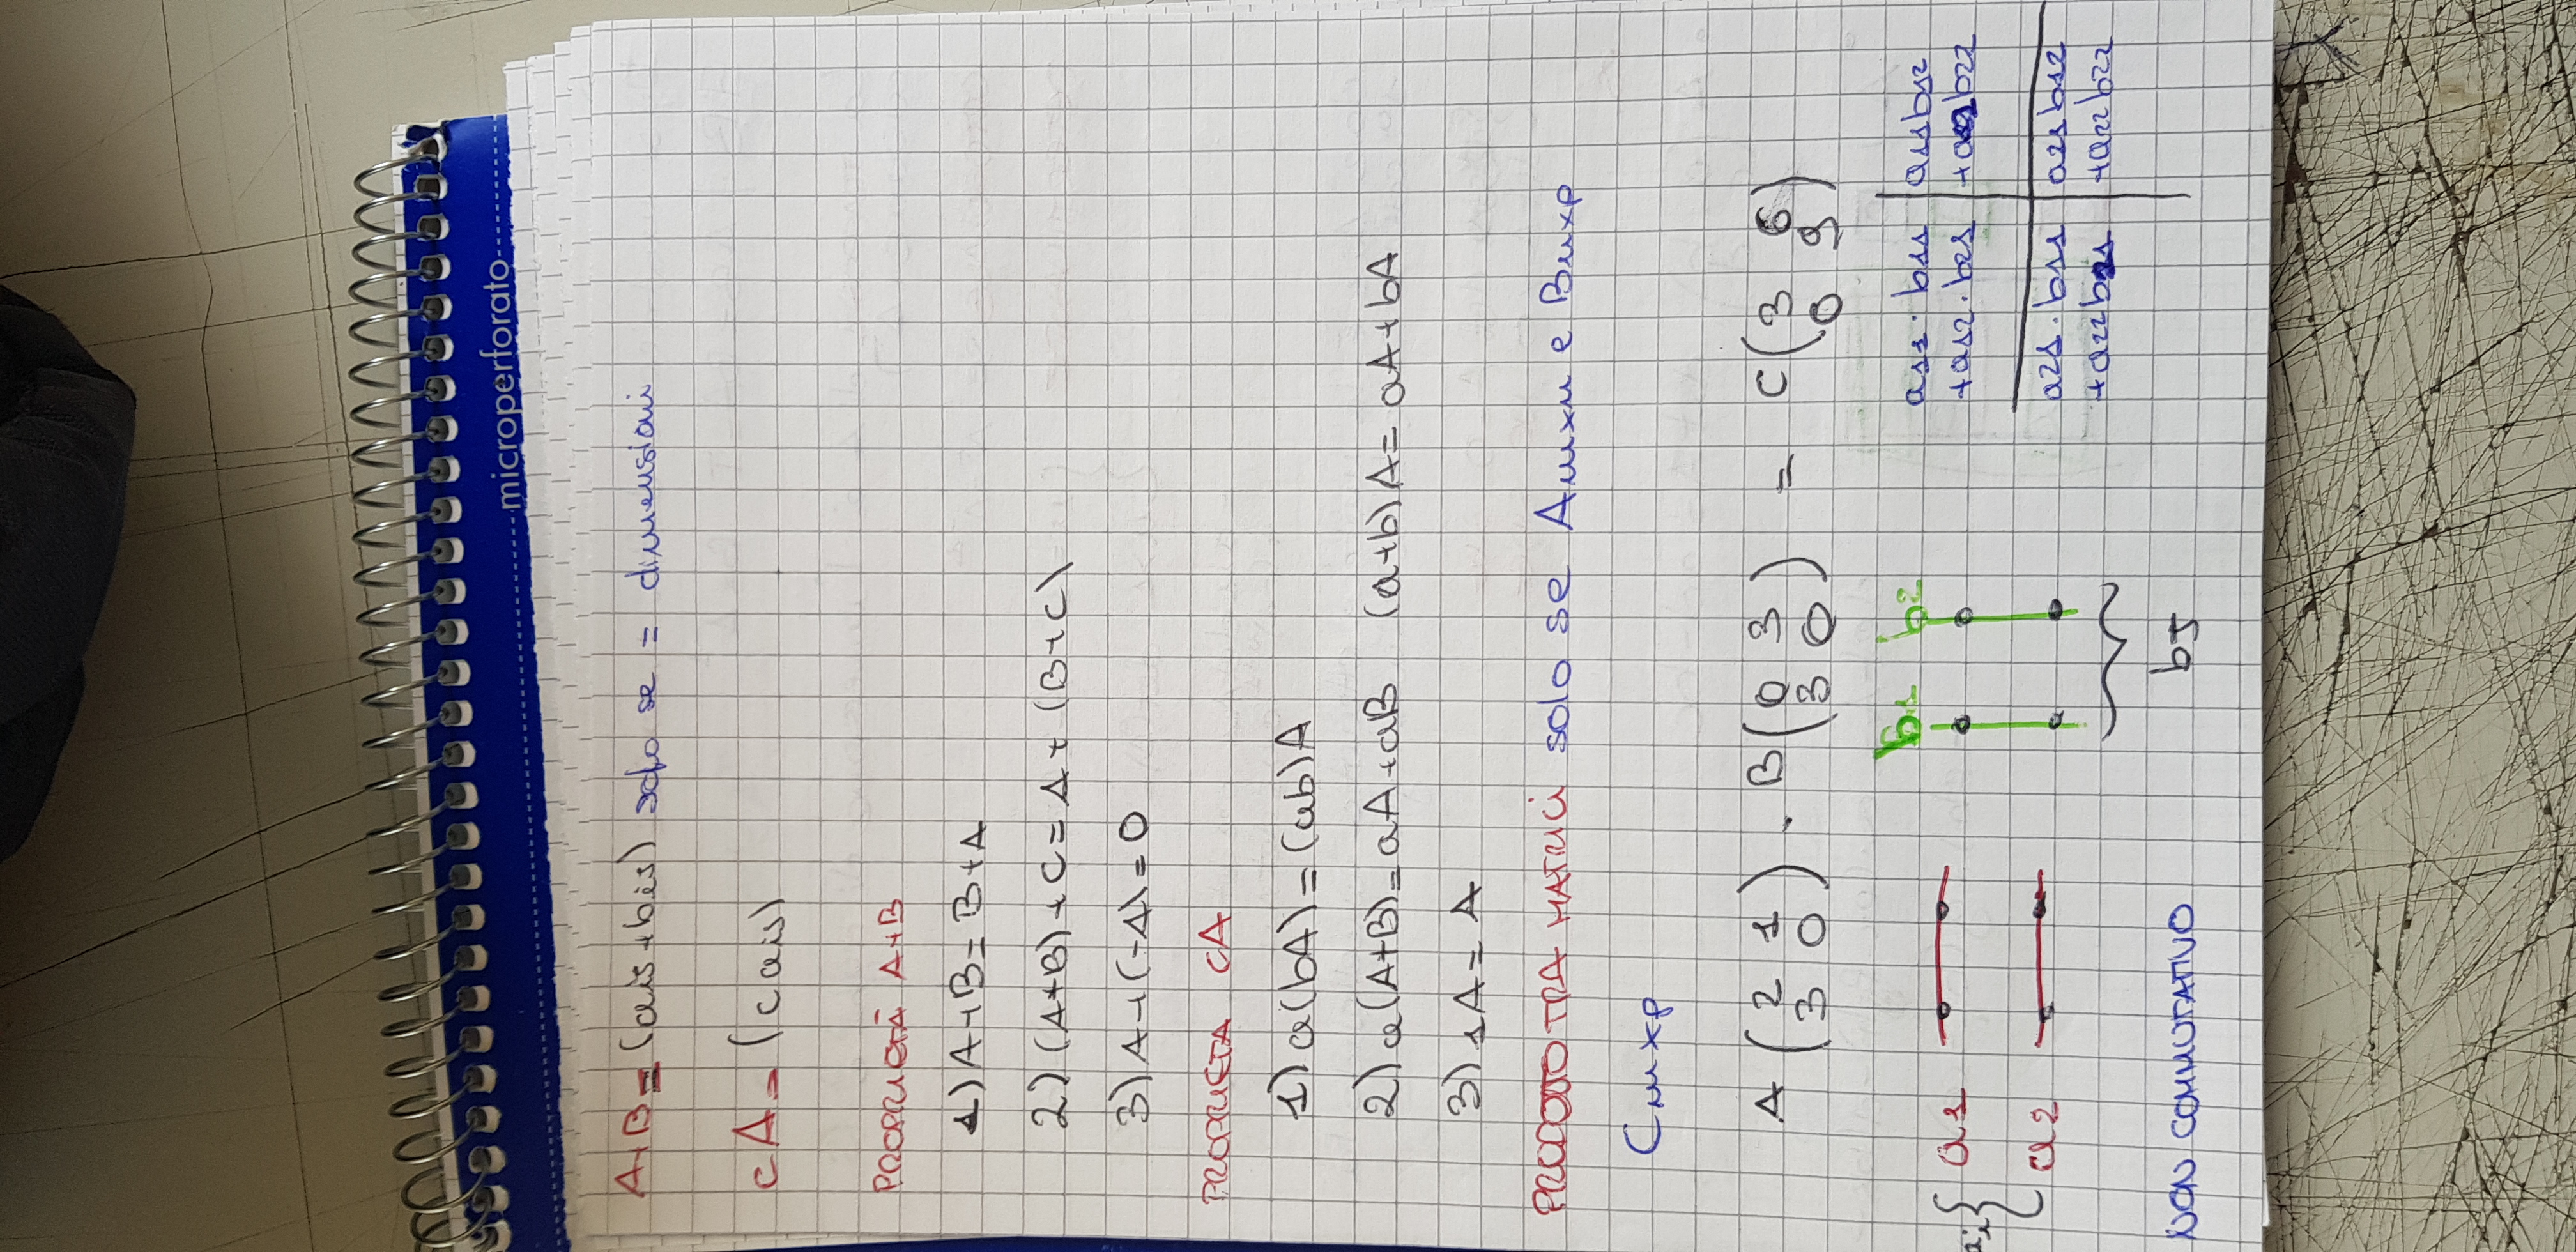 microperforato
A+B=(aij+bij) solo se = dimensioni
cA=(c aij)
PROPRIETÀ A+B
1) A+B=B+A
2) (A+B)+C=A+(B+C)
3) A+(-A)=0
PROPRIETA CA
1) a(bA)=(ab)A
2) a(A+B)=aA+aB (a+b)A=aA+bA
3) 1A=A
PRODOTTO TRA MATRICI solo se Amxn e Bnxp
Cmxp
A (2 1) · B (0 3) = C (3 6)
(3 0) (3 0) (0 9)
b1 b2
a1
ai { a2
a11·b11 a11b12
+a12·b21 +a12b22
a21·b11 a21b12
+a22b21 +a22b22
NON COMMUTATIVO
bj